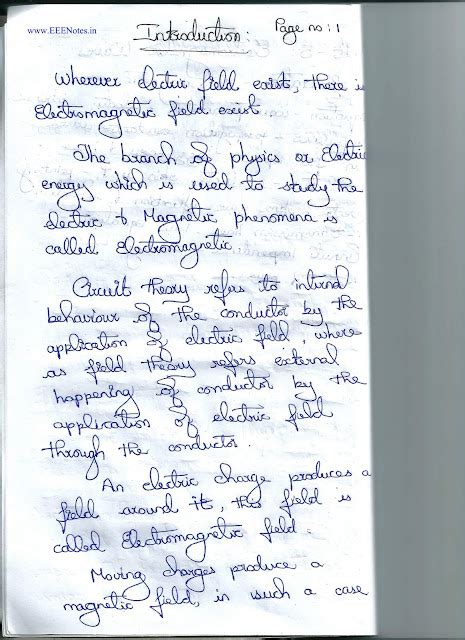 www.EEENotes.in
Introduction:
Page no: 1
Wherever electric field exist, there is
Electromagnetic field exist.
The branch of physics or Electric
energy which is used to study the
electric & Magnetic phenomena is
called Electromagnetic
Circuit theory refers to internal
behaviour of the conductor by the
application of electric field, where
as field theory refers external
happening of conductor by the
application of electric field
through the conductor.
An electric charge produces a
field around it, this field is
called Electromagnetic field.
Moving charges produce a
magnetic field, in such a case